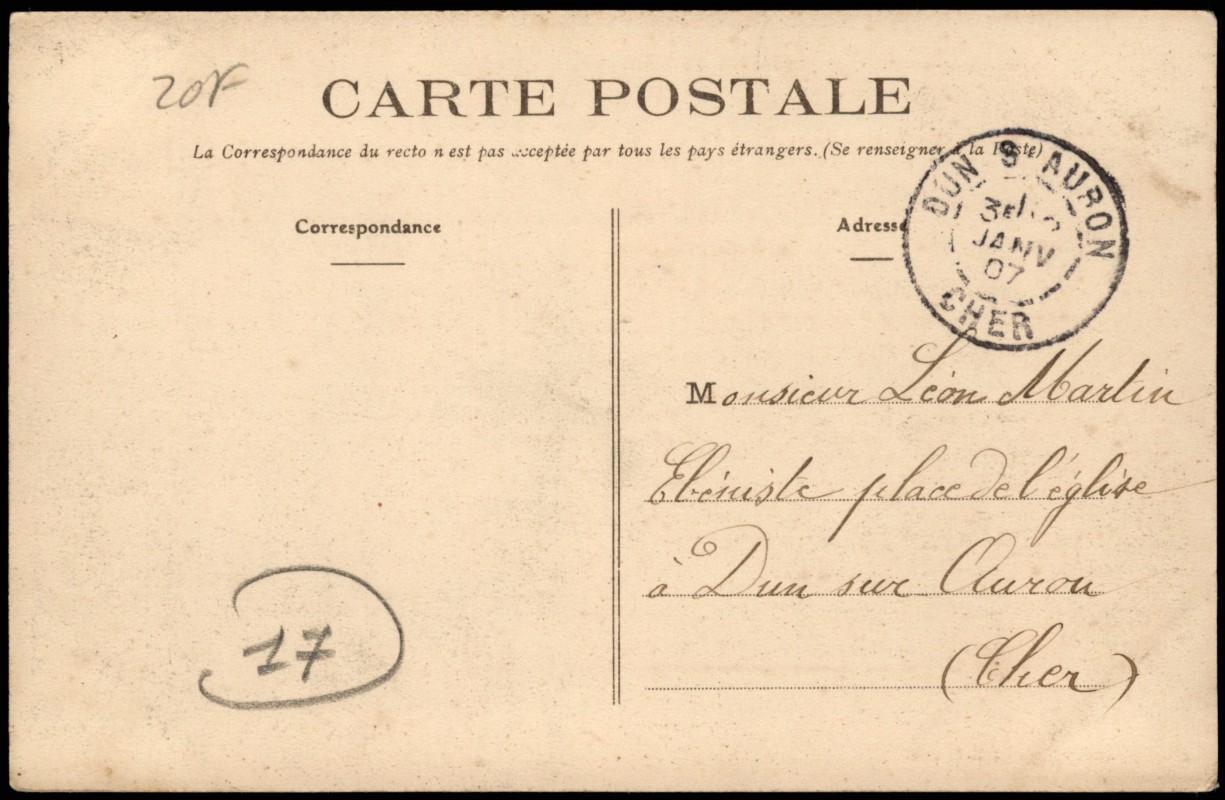 20F
CARTE POSTALE
La Correspondance du recto n est pas acceptée par tous les pays étrangers. (Se renseigner à la Poste)
Correspondance
Adresse
DUN S AURON
3E
JANV
07
CHER
Monsieur Léon Martin
Ebéniste place de l'église
à Dun sur Auron
(Cher)
17